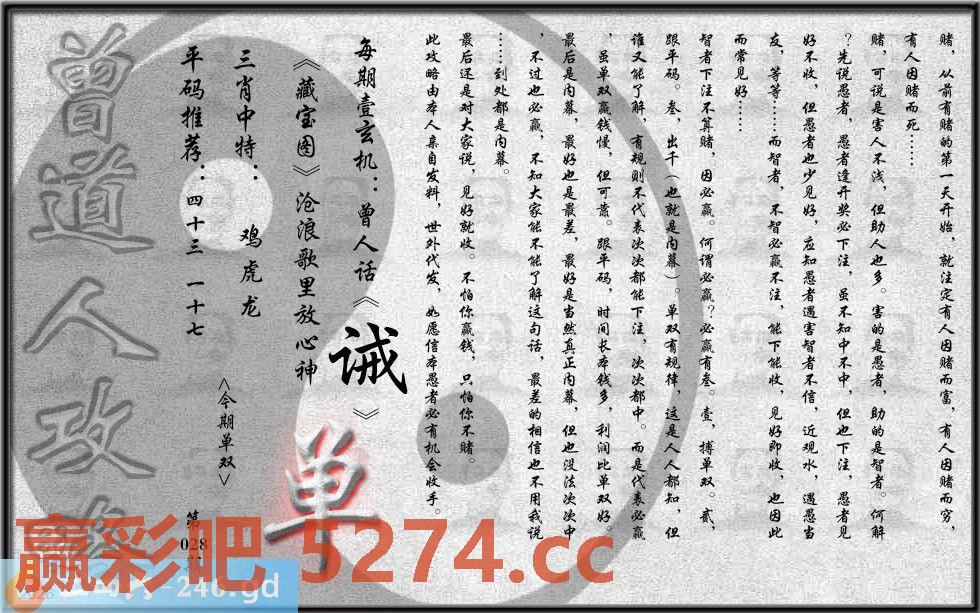 赌，从前有赌的第一天开始，就注定有人因赌而富，有人因赌而穷，
有人因赌而死……
赌，可说是害人不浅，但助人也多。害的是愚者，助的是智者。何解
？先说愚者，愚者逢开奖必下注，虽不知中不中，但也下注，愚者见
好不收，但愚者也少见好，应知愚者遇害智者不信，近观水，遇愚当
友，等等……而智者，不智必赢不注，能下能收，见好即收，也因此
而常见好……
智者下注不算赌，因必赢。何谓必赢？必赢有叁。壹，搏单双。贰，
跟平码。叁，出千（也就是内幕）。单双有规律，这是人人都知，但
谁又能了解，有规则不代表次次都能下注，次次都中。而是代表必赢
，虽单双赢钱慢，但可靠。跟平码，时间长本钱多，利润比单双好。
最后是内幕，最好也是最差，最好是当然真正内幕，但也没法次次中
，不过也必赢，不知大家能不能了解这句话，最差的相信也不用我说
……到处都是内幕。
最后还是对大家说，见好就收。不怕你赢钱，只怕你不赌。
此攻略由本人亲自发料，世外代发，如愿信本愚者必有机会收手。
每期壹玄机：曾人话《诫》
《藏宝图》沧浪歌里放心神
单
三肖中特：鸡虎龙
<今期单双>
平码推荐：四十三 一十七
第028
曾道人攻
赢彩吧 5274.cc
-246.gd